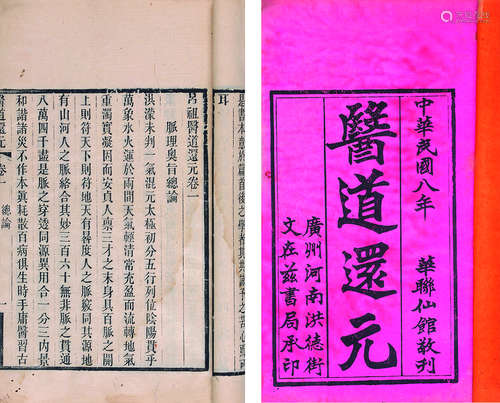 中華民國八年
華聯仙館敬刊
醫道還元
廣州河南洪德街
文在茲書局承印
耳
呂祖醫道還元卷一
脈理奧旨總論
洪濛未判一氣混元太極初分五行列位陰陽貫乎
萬象水火運於兩間天氣輕清常充盈而流轉地氣
重濁實凝固而安貞人稟三才之末身具百脈之原
上則符天下則符地天有晷度人之脈竅同其源地
有山河人之脈絡合其妙三百六十無非脈之貫通
八萬四千盡是脈之穿透同源異用合一分三內景
和諧諸災不作本真耗散百病俱生時手庸醫習古
醫道還元 卷一 總論